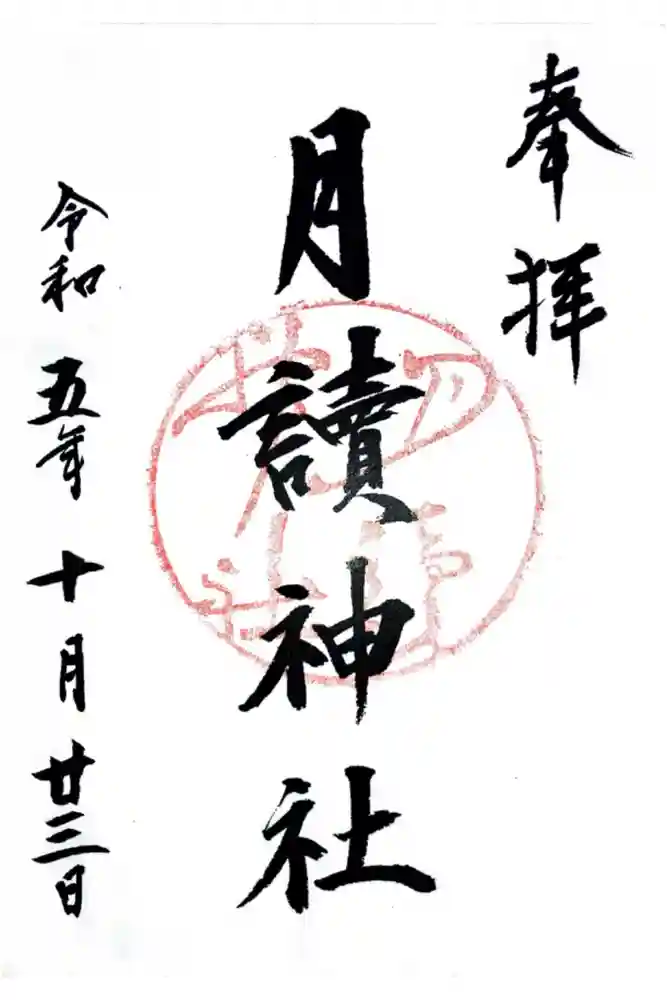 奉拝
月讀神社
令和五年十月廿三日